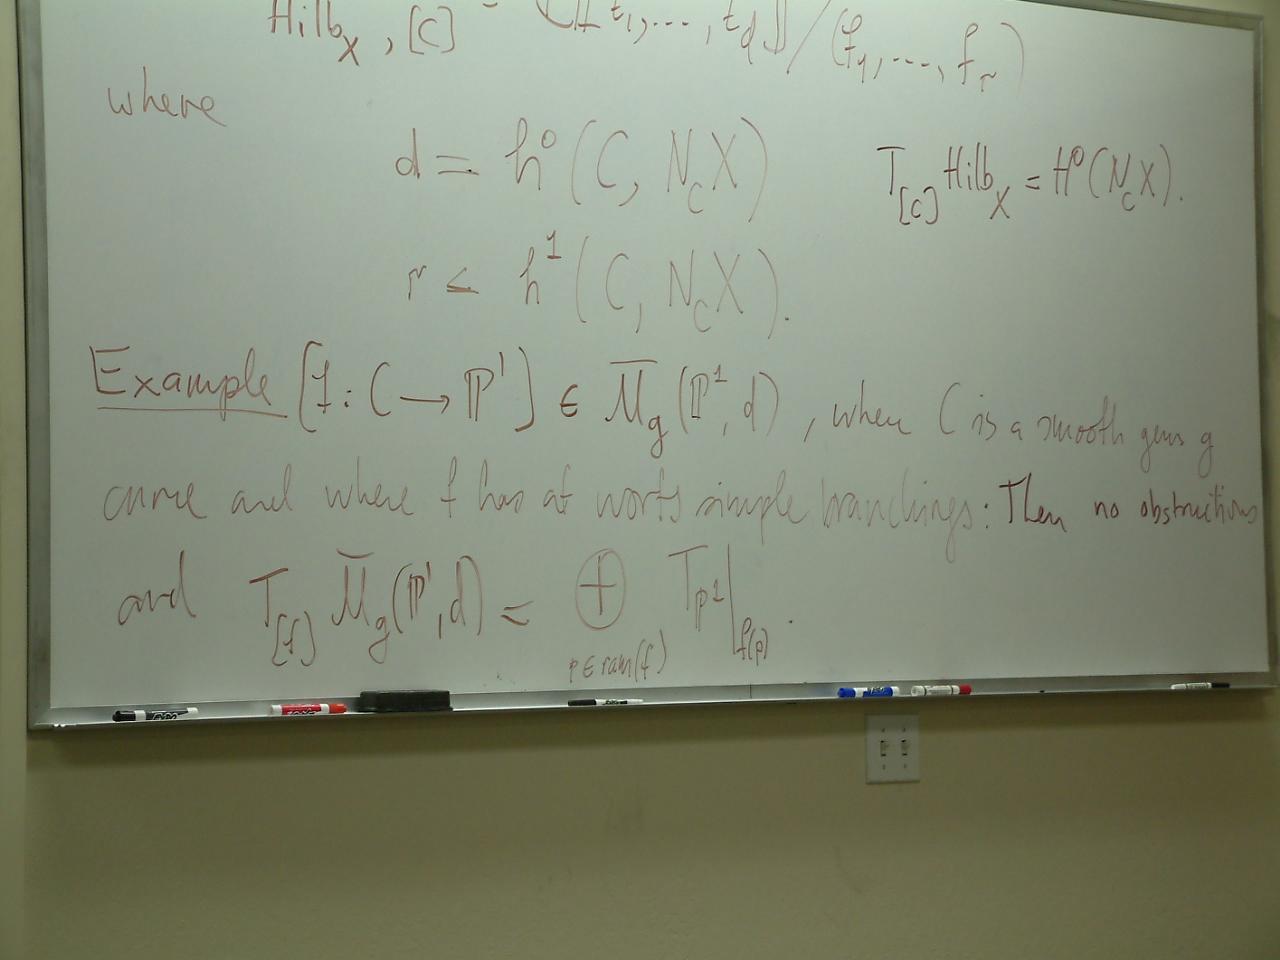 Hilb_X,[C] = ℂ[[t_1, ..., t_d]]/(f_1, ..., f_r)
where
d = h^0(C, N_C X)
T_[C] Hilb_X = H^0(N_C X).
r ≤ h^1(C, N_C X).
Example [f: C → ℙ^1] ∈ M̅_g(ℙ^1, d), where C is a smooth genus g
curve and where f has at worts simple branchings: Then no obstructions
and T_[f] M̅_g(ℙ^1, d) = ⊕_{p ∈ ram(f)} T_{ℙ^1}|_{f(p)}.